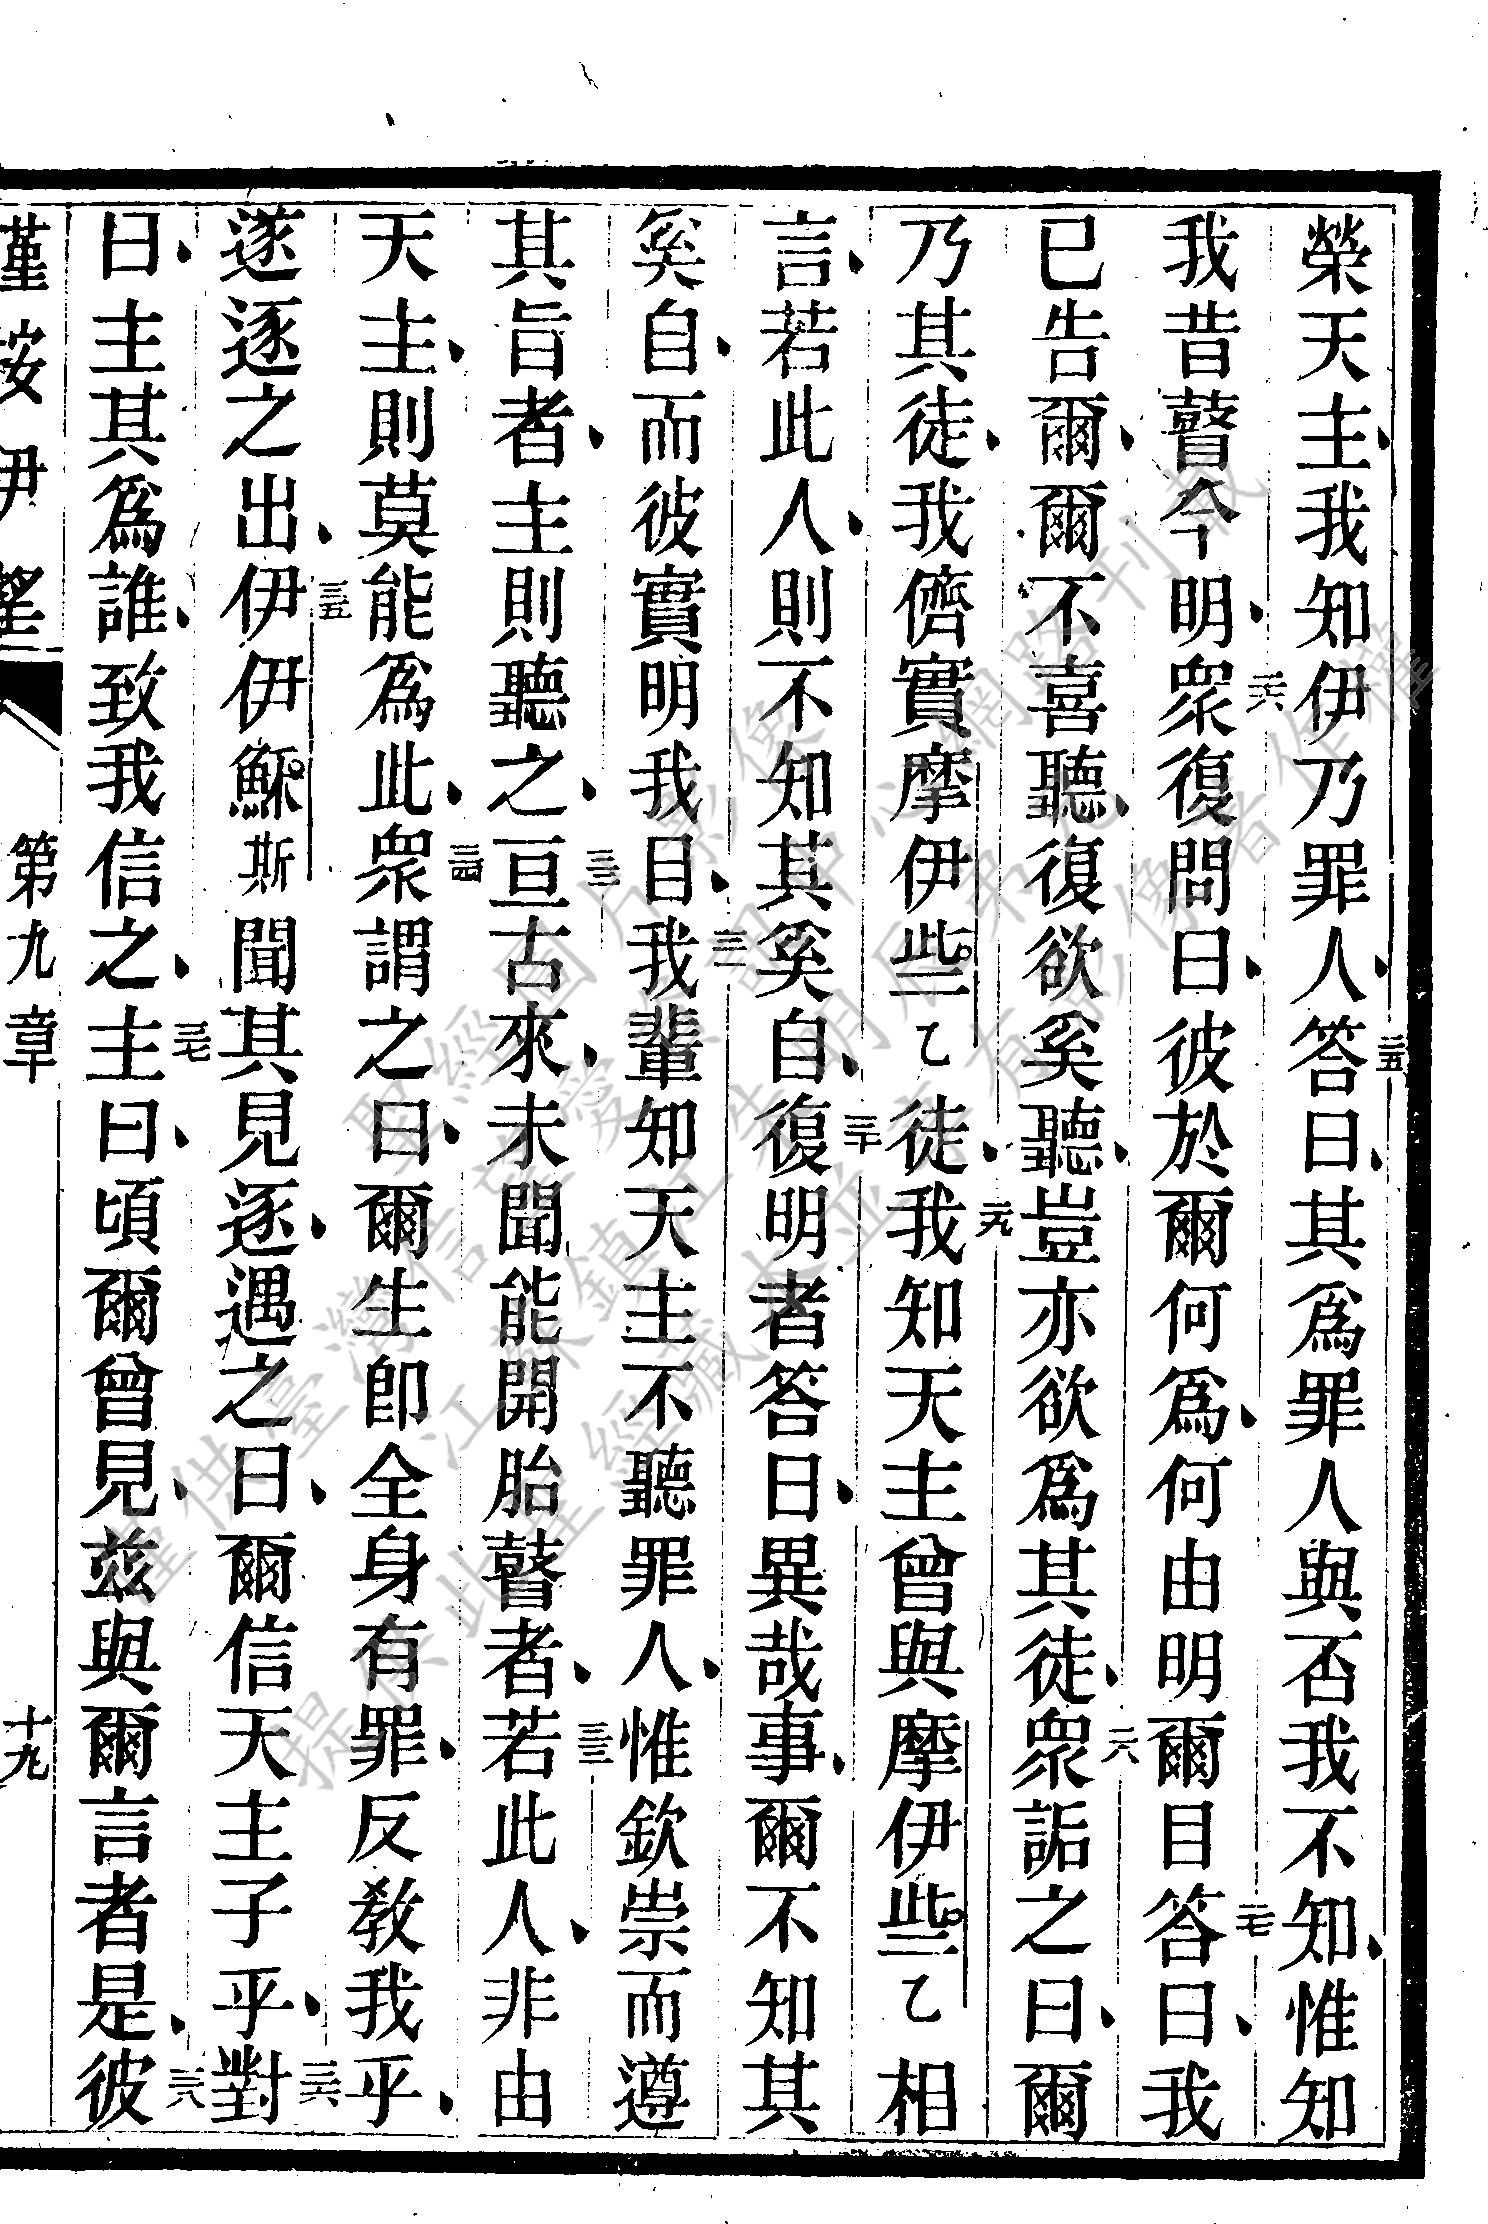 榮天主、我知伊乃罪人、二五答曰、其爲罪人與否我不知、惟知
我昔瞽今明、二六衆復問曰、彼於爾何爲、何由明爾目二七答曰、我
已告爾、爾不喜聽、復欲奚聽、豈亦欲爲其徒、二八衆詬之曰、爾
乃其徒、我儕實摩伊些乙徒、二九我知天主曾與摩伊些乙相
言、若此人、則不知其奚自、三十復明者答曰、異哉事、爾不知其
奚自、而彼實明我目、三一我輩知天主不聽罪人、惟欽崇而遵
其旨者、主則聽之、三二亘古來、未聞能開胎瞽者、三三若此人、非由
天主、則莫能爲此、三四衆謂之曰、爾生卽全身有罪、反敎我乎、
遂逐之出、三五伊伊穌斯聞其見逐、遇之曰、爾信天主子乎、三六對
曰、主其爲誰、致我信之、三七主曰、頃爾曾見、茲與爾言者是、三八彼
第九章
十九